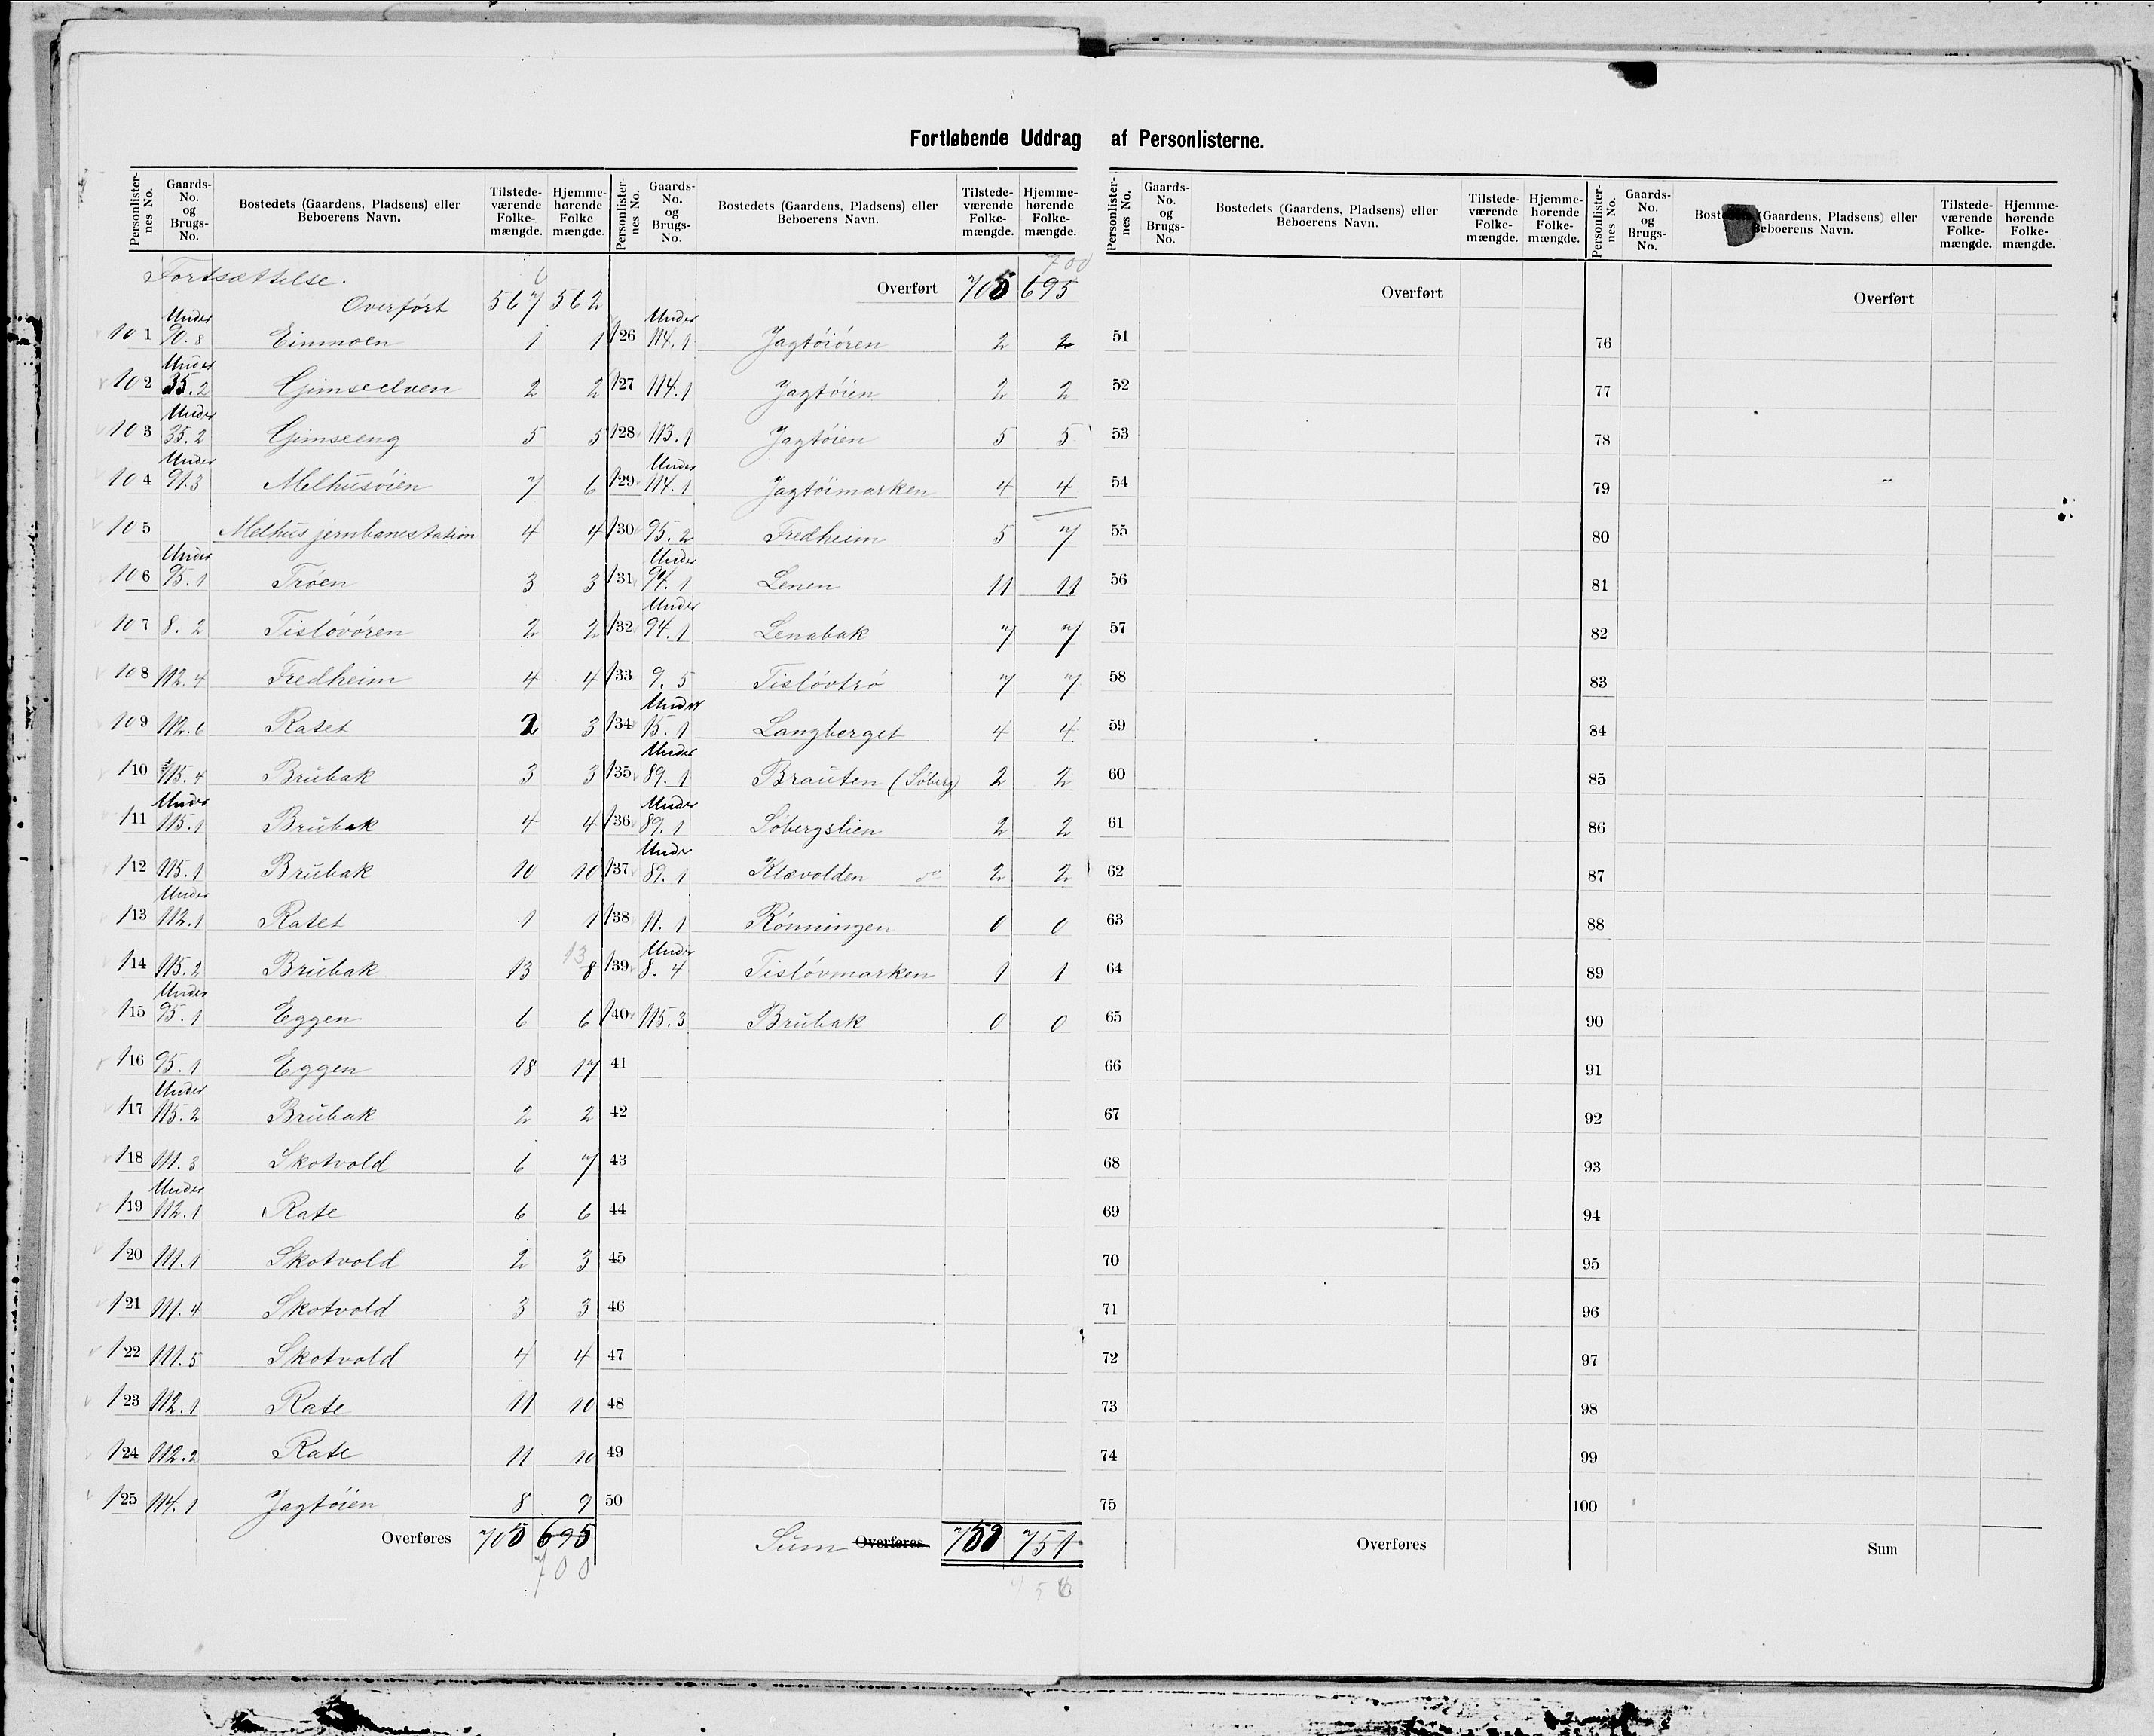 Fortløbende Uddrag af Personlisterne.
Personlisternes No. | Gaards-No. og Brugs-No. | Bostedets (Gaardens, Pladsens) eller Beboerens Navn. | Tilstedeværende Folkemængde. | Hjemmehørende Folke mængde.
Fortsættelse.
Overført 567 562
101 Under 90.8 Einmoen 1 1
102 Under 35.2 Gimseelven 2 2
103 Under 35.2 Gimseeng 5 5
104 Under 91.3 Melhusøien 7 6
105 Melhus jernbanestation 4 4
106 Under 95.1 Trøen 3 3
107 8.2 Tisløvøren 2 2
108 112.4 Fredheim 4 4
109 112.6 Raset 2 3
110 115.4 Brubak 3 3
111 Under 115.1 Brubak 4 4
112 115.1 Brubak 10 10
113 Under 112.1 Ratet 1 1
114 115.2 Brubak 13 13 8
115 Under 95.1 Eggen 6 6
116 95.1 Eggen 18 17
117 Under 115.2 Brubak 2 2
118 111.3 Skotvold 6 7
119 Under 112.1 Rate 6 6
120 111.1 Skotvold 2 3
121 111.4 Skotvold 3 3
122 111.5 Skotvold 4 4
123 112.1 Rate 11 10
124 112.2 Rate 11 10
125 114.1 Jagtøien 8 9
Overføres 705 695
700
Personlisternes No. | Gaards-No. og Brugs-No. | Bostedets (Gaardens, Pladsens) eller Beboerens Navn. | Tilstedeværende Folkemængde. | Hjemmehørende Folkemængde.
700
Overført 705 695
126 Under 114.1 Jagtøiøren 2 2
127 114.1 Jagtøien 2 2
128 113.1 Jagtøien 5 5
129 Under 114.1 Jagtøimarken 4 4
130 95.2 Fredheim 5 7
131 Under 94.1 Lenen 11 11
132 Under 94.1 Lenabak 7 7
133 9.5 Tisløvtrø 7 7
134 Under 15.1 Langberget 4 4
135 Under 89.1 Brauten (Søberg) 2 2
136 Under 89.1 Søbergslien 2 2
137 Under 89.1 Klævolden do 2 2
138 11.1 Rønningen 0 0
139 Under 8.4 Tisløvmarken 1 1
140 115.3 Brubak 0 0
41
42
43
44
45
46
47
48
49
50
Sum Overføres 759 751
756
Personlisternes No. | Gaards-No. og Brugs-No. | Bostedets (Gaardens, Pladsens) eller Beboerens Navn. | Tilstedeværende Folkemængde. | Hjemmehørende Folkemængde.
Overført
51
52
53
54
55
56
57
58
59
60
61
62
63
64
65
66
67
68
69
70
71
72
73
74
75
Overføres
Personlisternes No. | Gaards-No. og Brugs-No. | Bostedets (Gaardens, Pladsens) eller Beboerens Navn. | Tilstedeværende Folkemængde. | Hjemmehørende Folkemængde.
Overført
76
77
78
79
80
81
82
83
84
85
86
87
88
89
90
91
92
93
94
95
96
97
98
99
100
Sum